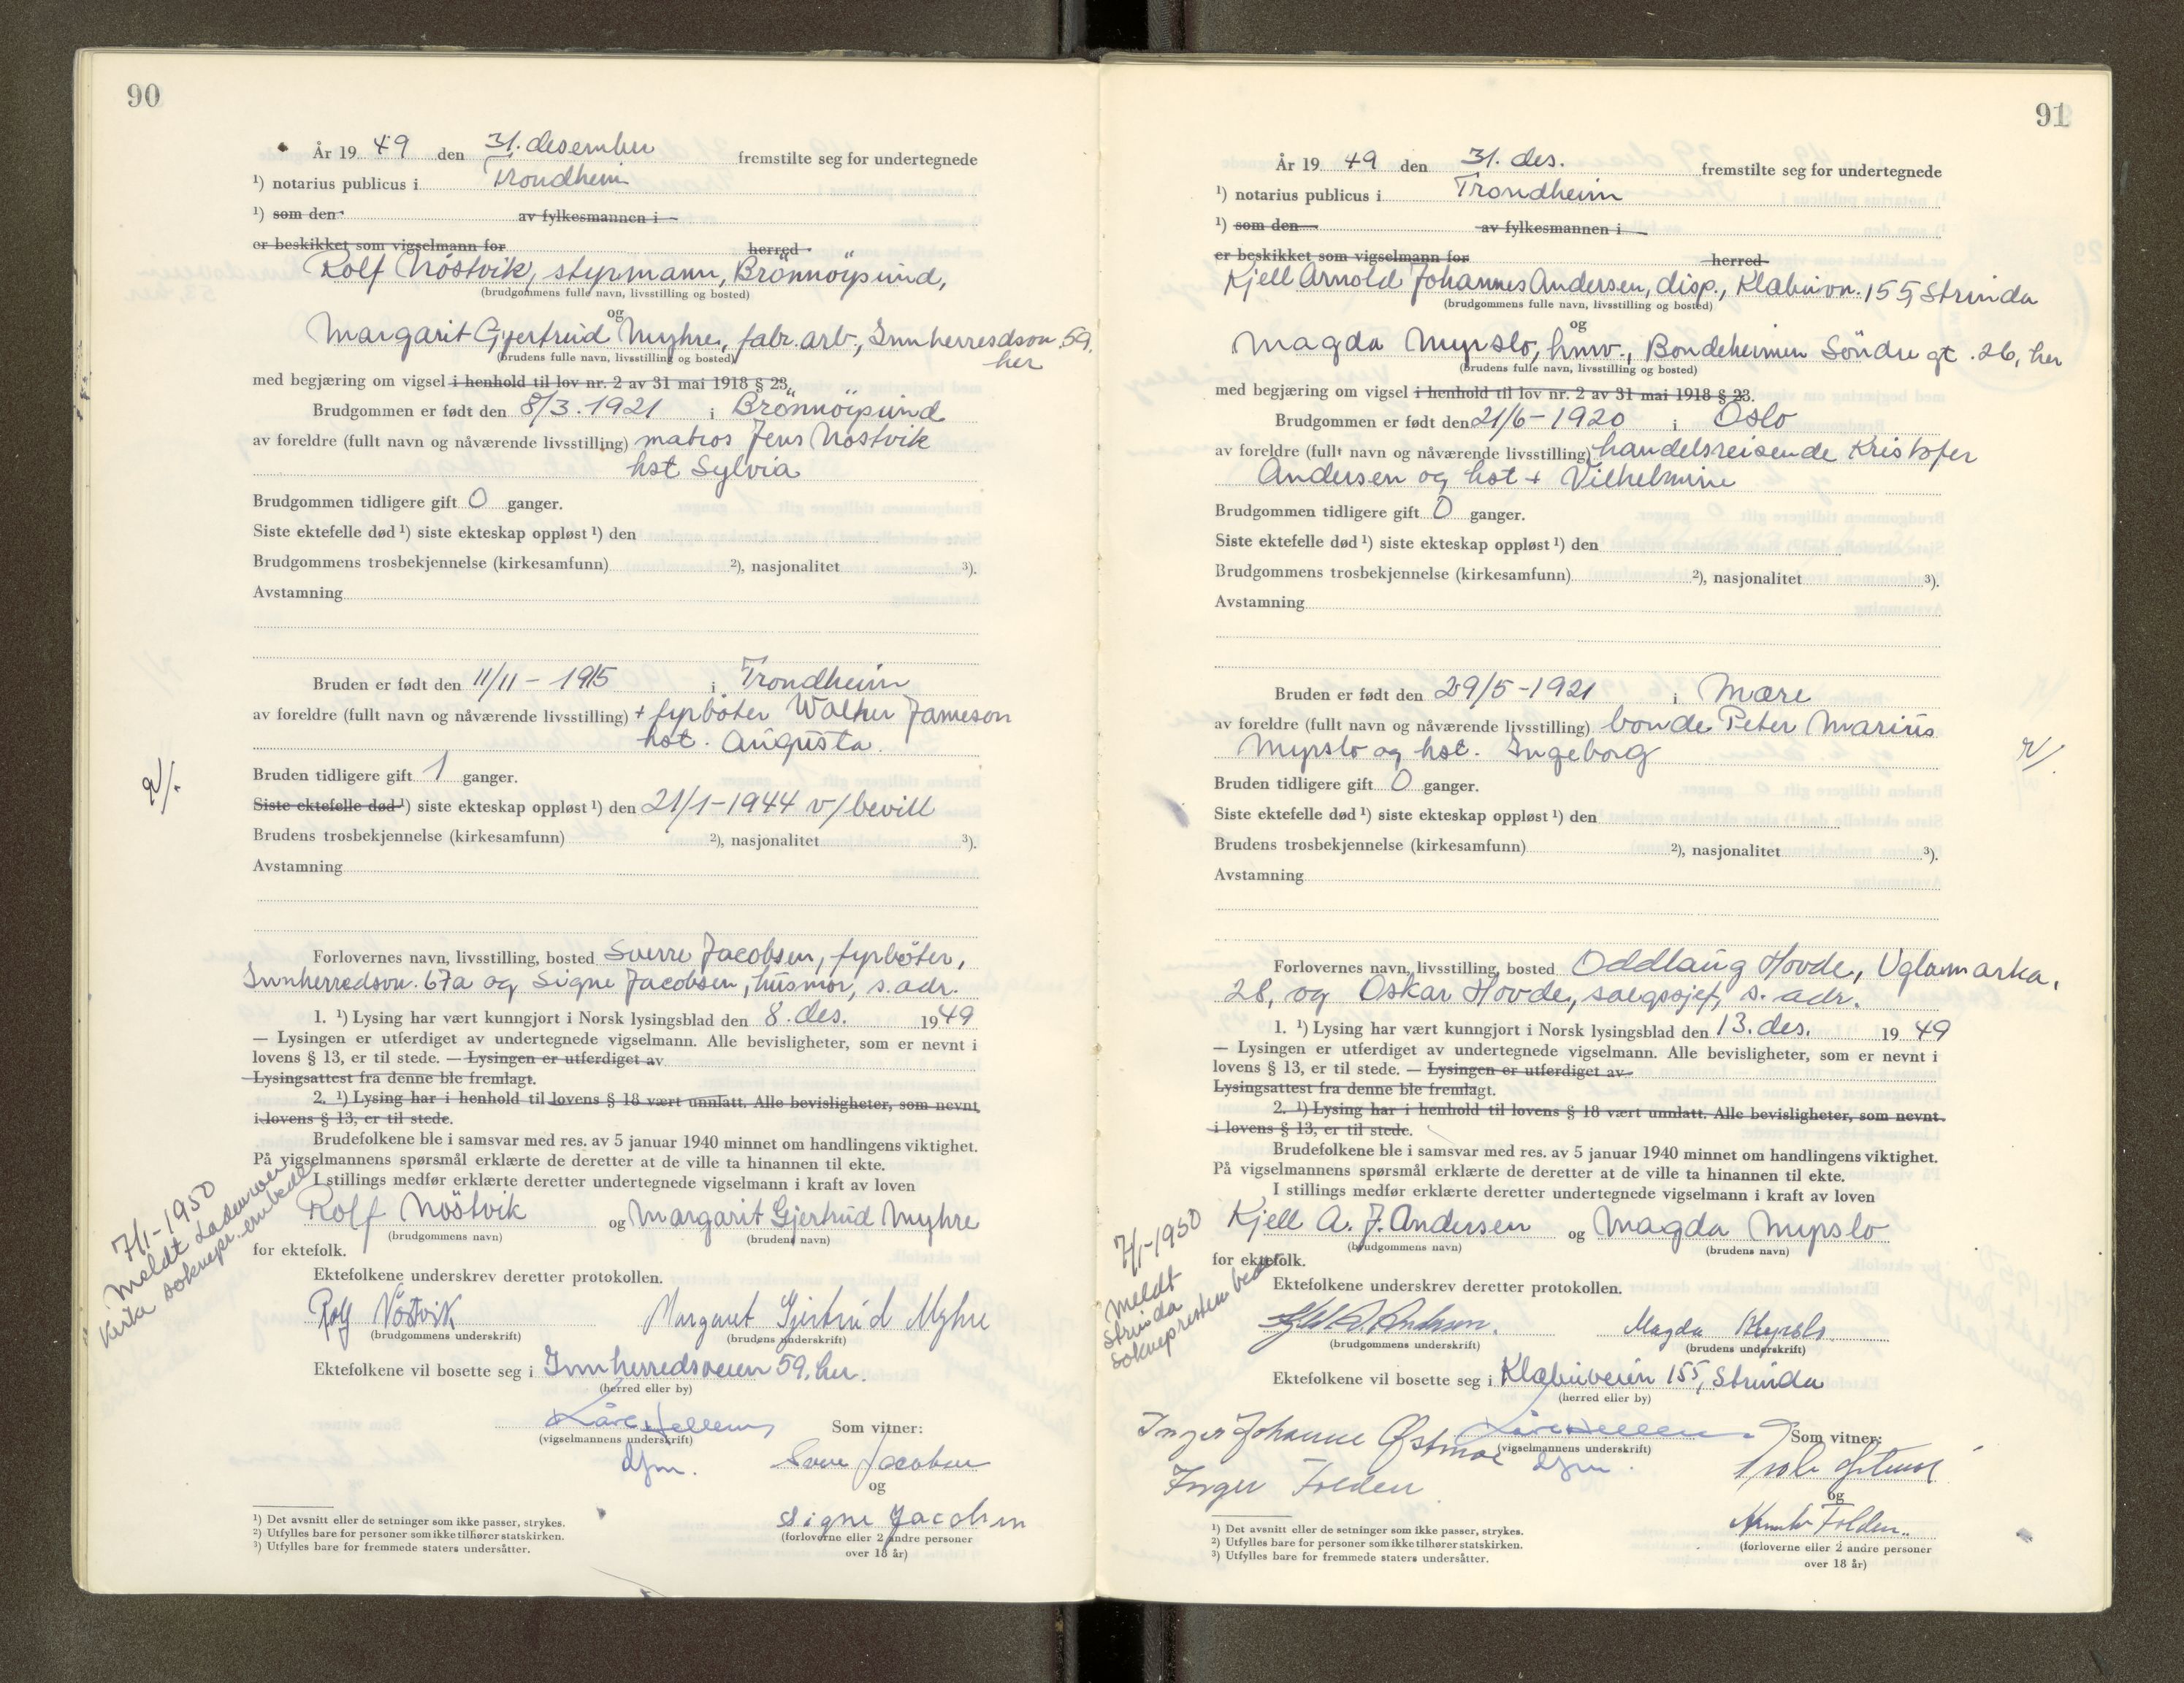 90
År 19 49 den 31. desember fremstilte seg for undertegnede
¹) notarius publicus i Trondheim
¹) som den av fylkesmannen i
er beskikket som vigselmann for herred
Rolf Nöstvik, styrmann, Brönnöysund,
(brudgommens fulle navn, livsstilling og bosted)
og
Margarit Gjertrud Myhre, fabr. arb., Innherredsvn. 59,
(brudens fulle navn, livsstilling og bosted) her
med begjæring om vigsel i henhold til lov nr. 2 av 31 mai 1918 § 23.
Brudgommen er født den 8/3. 1921 i Brönnöysund
av foreldre (fullt navn og nåværende livsstilling) matros Jens Nöstvik
hst Sylvia
Brudgommen tidligere gift 0 ganger.
Siste ektefelle død ¹) siste ekteskap oppløst ¹) den
Brudgommens trosbekjennelse (kirkesamfunn) ²), nasjonalitet ³).
Avstamning
Bruden er født den 11/11 - 1915 i Trondheim
av foreldre (fullt navn og nåværende livsstilling) + fyrböter Walther Jameson
hst. Augusta.
Bruden tidligere gift 1 ganger.
Siste ektefelle død ¹) siste ekteskap oppløst ¹) den 21/1 - 1944 v/bevill
Brudens trosbekjennelse (kirkesamfunn) ²), nasjonalitet ³).
Avstamning
Forlovernes navn, livsstilling, bosted Sverre Jacobsen, fyrböter,
Innherredsvn. 67a og Signe Jacobsen, husmor, s. adr.
1. ¹) Lysing har vært kunngjort i Norsk lysingsblad den 8. des. 1949
— Lysingen er utferdiget av undertegnede vigselmann. Alle bevisligheter, som er nevnt i
lovens § 13, er til stede. — Lysingen er utferdiget av
Lysingsattest fra denne ble fremlagt.
2. ¹) Lysing har i henhold til lovens § 18 vært unnlatt. Alle bevisligheter, som nevnt
i lovens § 13, er til stede.
Brudefolkene ble i samsvar med res. av 5 januar 1940 minnet om handlingens viktighet.
På vigselmannens spørsmål erklærte de deretter at de ville ta hinannen til ekte.
I stillings medfør erklærte deretter undertegnede vigselmann i kraft av loven
Rolf Nöstvik og Margarit Gjertrud Myhre
(brudgommens navn) (brudens navn)
for ektefolk.
7/1-1950
Meldt Lademoen
Kirke soknepr.embede
Ektefolkene underskrev deretter protokollen.
Rolf Nöstvik Margaret Gjertrud Myhre
(brudgommens underskrift) (brudens underskrift)
Ektefolkene vil bosette seg i Innherredsveien 59, her.
(herred eller by)
Som vitner:
(vigselmannens underskrift)
dfm. Sverre Jacobsen
og
Signe Jacobsen
(forloverne eller 2 andre personer
over 18 år)
¹) Det avsnitt eller de setninger som ikke passer, strykes.
²) Utfylles bare for personer som ikke tilhører statskirken.
³) Utfylles bare for fremmede staters undersåtter.
91
År 19 49 den 31. des. fremstilte seg for undertegnede
¹) notarius publicus i Trondheim
¹) som den av fylkesmannen i
er beskikket som vigselmann for herred
Kjell Arnold Johannes Andersen, disp., Klæbuvn. 155, Strinda
(brudgommens fulle navn, livsstilling og bosted)
og
Magda Myrslo, hmv., Bondeheimen Söndre gt. 26, her
(brudens fulle navn, livsstilling og bosted)
med begjæring om vigsel i henhold til lov nr. 2 av 31 mai 1918 § 23.
Brudgommen er født den 21/6 - 1920 i Oslo
av foreldre (fullt navn og nåværende livsstilling) handelsreisende Kristofer
Andersen og hst + Vilhelmine
Brudgommen tidligere gift 0 ganger.
Siste ektefelle død ¹) siste ekteskap oppløst ¹) den
Brudgommens trosbekjennelse (kirkesamfunn) ²), nasjonalitet ³).
Avstamning
Bruden er født den 29/5 - 1921 i Mære
av foreldre (fullt navn og nåværende livsstilling) bonde Peter Marius
Myrslo og hst. Ingeborg
Bruden tidligere gift 0 ganger.
Siste ektefelle død ¹) siste ekteskap oppløst ¹) den
Brudens trosbekjennelse (kirkesamfunn) ²), nasjonalitet ³).
Avstamning
Forlovernes navn, livsstilling, bosted Oddlaug Hovde, Uglamarka,
28, og Oskar Hovde, salgssjef, s. adr.
1. ¹) Lysing har vært kunngjort i Norsk lysingsblad den 13. des. 19 49
— Lysingen er utferdiget av undertegnede vigselmann. Alle bevisligheter, som er nevnt i
lovens § 13, er til stede. — Lysingen er utferdiget av
Lysingsattest fra denne ble fremlagt.
2. ¹) Lysing har i henhold til lovens § 18 vært unnlatt. Alle bevisligheter, som nevnt
i lovens § 13, er til stede.
Brudefolkene ble i samsvar med res. av 5 januar 1940 minnet om handlingens viktighet.
På vigselmannens spørsmål erklærte de deretter at de ville ta hinannen til ekte.
I stillings medfør erklærte deretter undertegnede vigselmann i kraft av loven
Kjell A. J. Andersen og Magda Myrslo
(brudgommens navn) (brudens navn)
for ektefolk.
7/1-1950
Meldt
Strinda
sokneprestembede
Ektefolkene underskrev deretter protokollen.
Andersen. Magda Myrslo
(brudgommens underskrift) (brudens underskrift)
Ektefolkene vil bosette seg i Klæbuveien 155, Strinda
(herred eller by)
Inger Johanne Østmoe Som vitner:
(vigselmannens underskrift)
Inger Folden dfm.
og
Folden.
(forloverne eller 2 andre personer
over 18 år)
¹) Det avsnitt eller de setninger som ikke passer, strykes.
²) Utfylles bare for personer som ikke tilhører statskirken.
³) Utfylles bare for fremmede staters undersåtter.